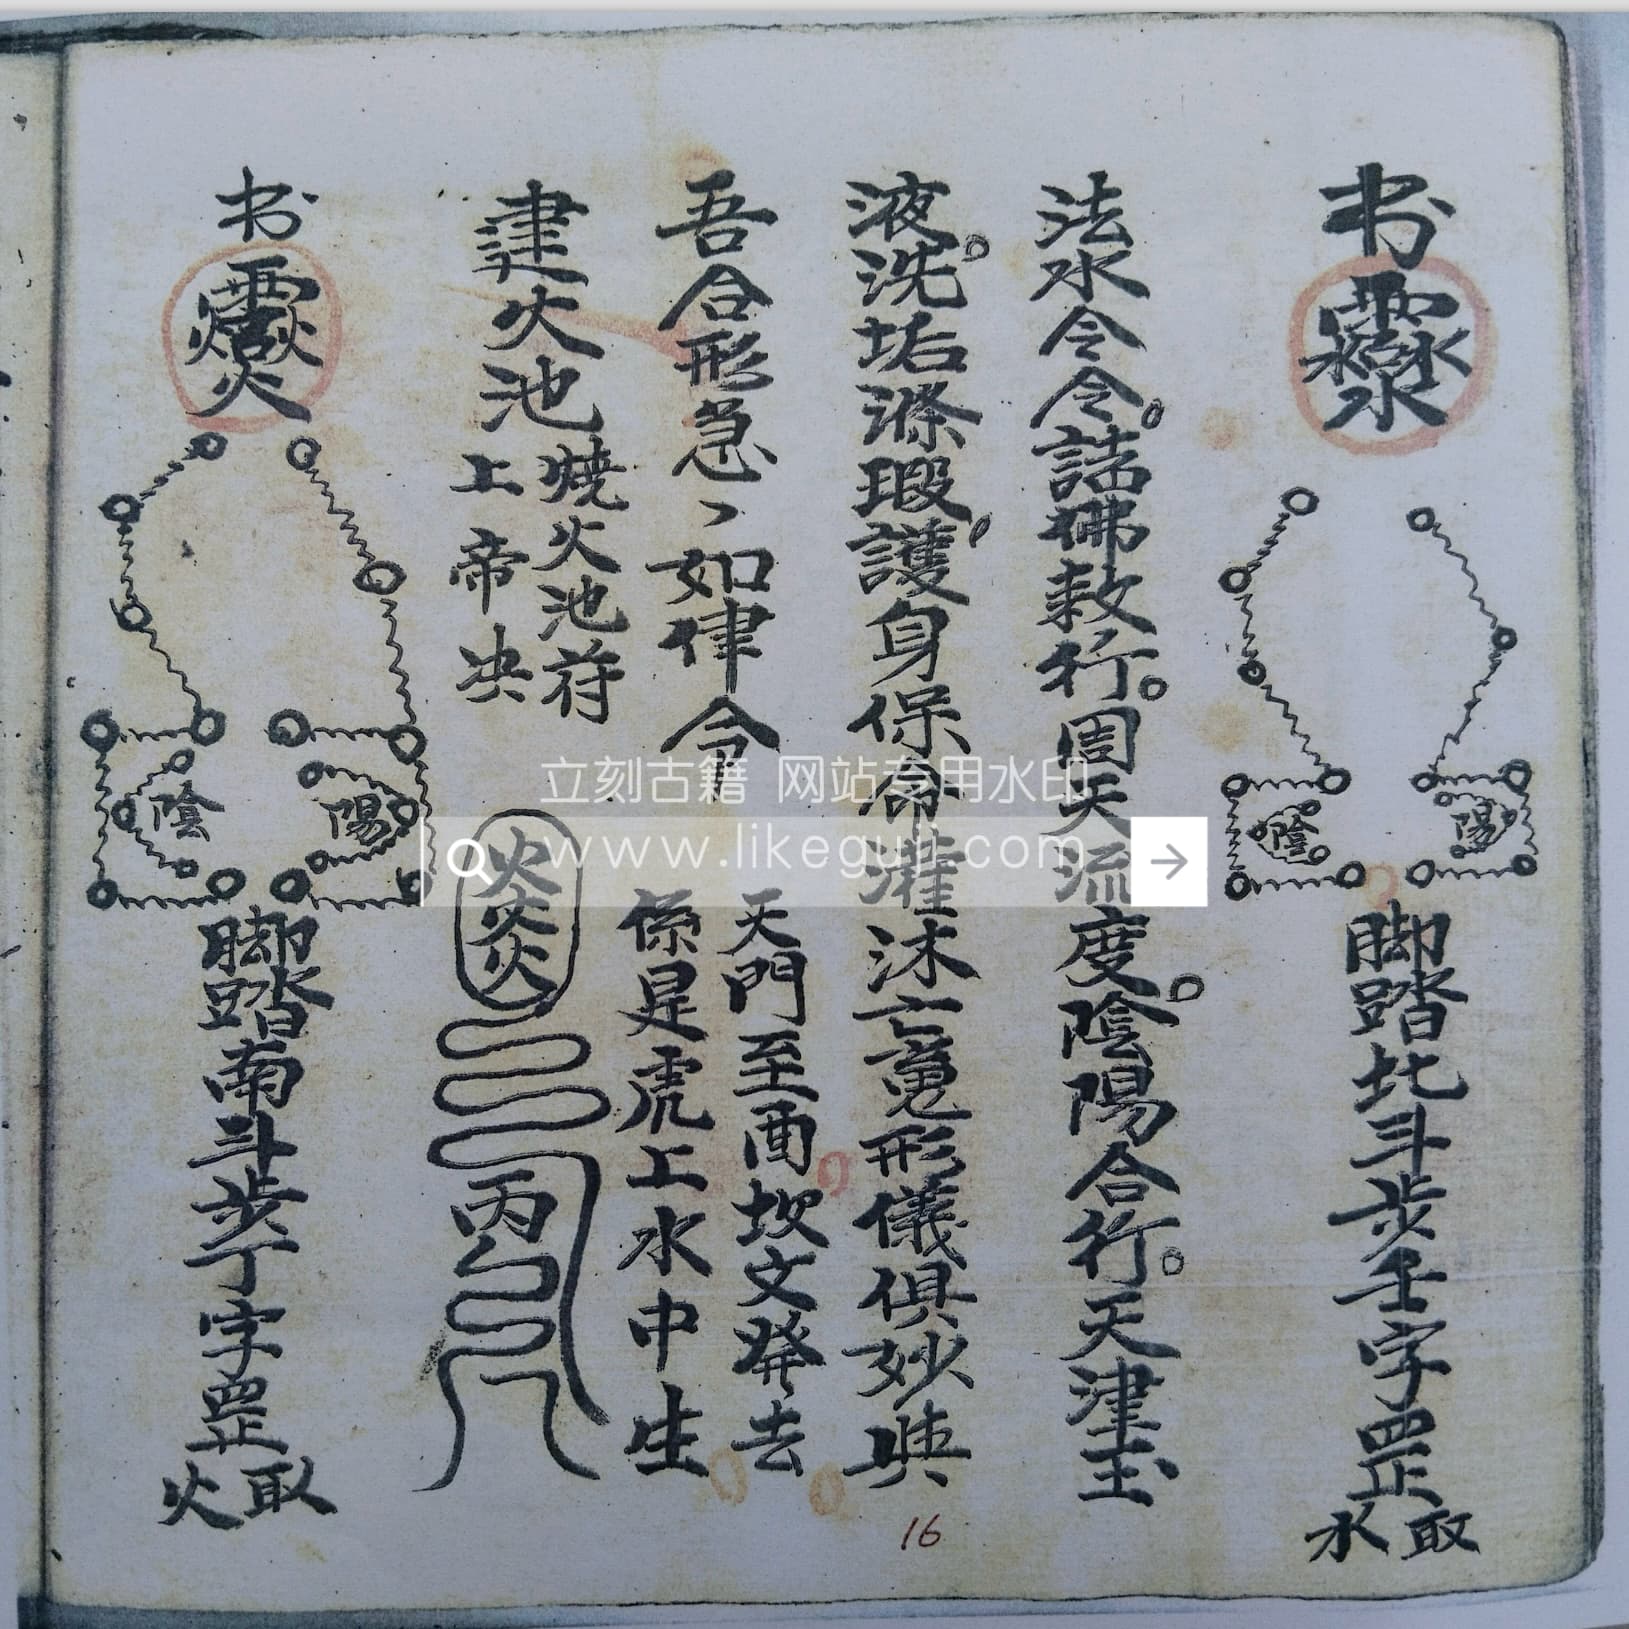 书
脚踏北斗步壬字罡
取
水
法水令令詰佛敕行周天流度陰陽合行天津玉
液洗垢滌瑕護身保命灌沐亡魂形儀俱妙典
吾合形急丶如律令
天門至酉坎文發去
係是虎上水中生
建火池
燒火池符
上帝决
火
火
火
丙
书
脚踏南斗步丁字罡
取
火
陰
陽
陰
陽
16
立刻古籍 网站专用水印
www.likeguji.com